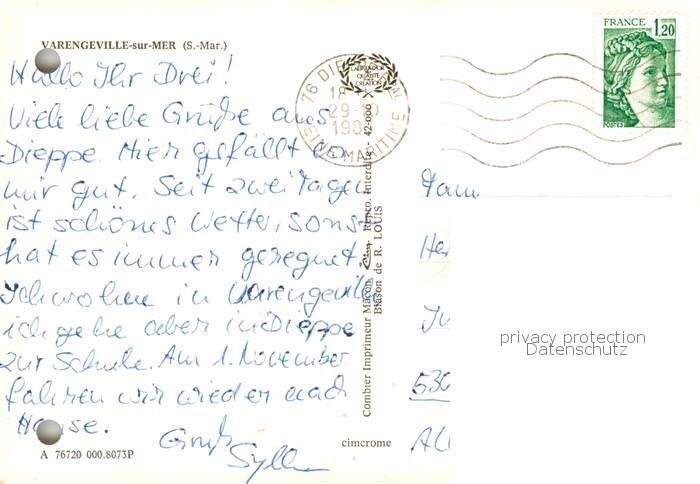 VARENGEVILLE-sur-MER (S.-Mar.)
Hallo Ihr Drei!
Viele liebe Grüße aus
Dieppe. Hier gefällt es
mir gut. Seit zwei Tagen
ist schönes Wetter, sonst
hat es immer geregnet.
Ich wohne in Varengeville
ich gehe aber in Dieppe
zur Schule. Am 1. November
fahren wir wieder nach
Hause.
Gruß
A 76720 000.8073P
cimcrome
Combier Imprimeur Macon Cim Repro. Interdite - 42-000
Blason de R. LOUIS
76 DIE
18
29-
198
NE MARITIME
FRANCE 1,20
POSTES
Fam.
He
530
privacy protection
Datenschutz